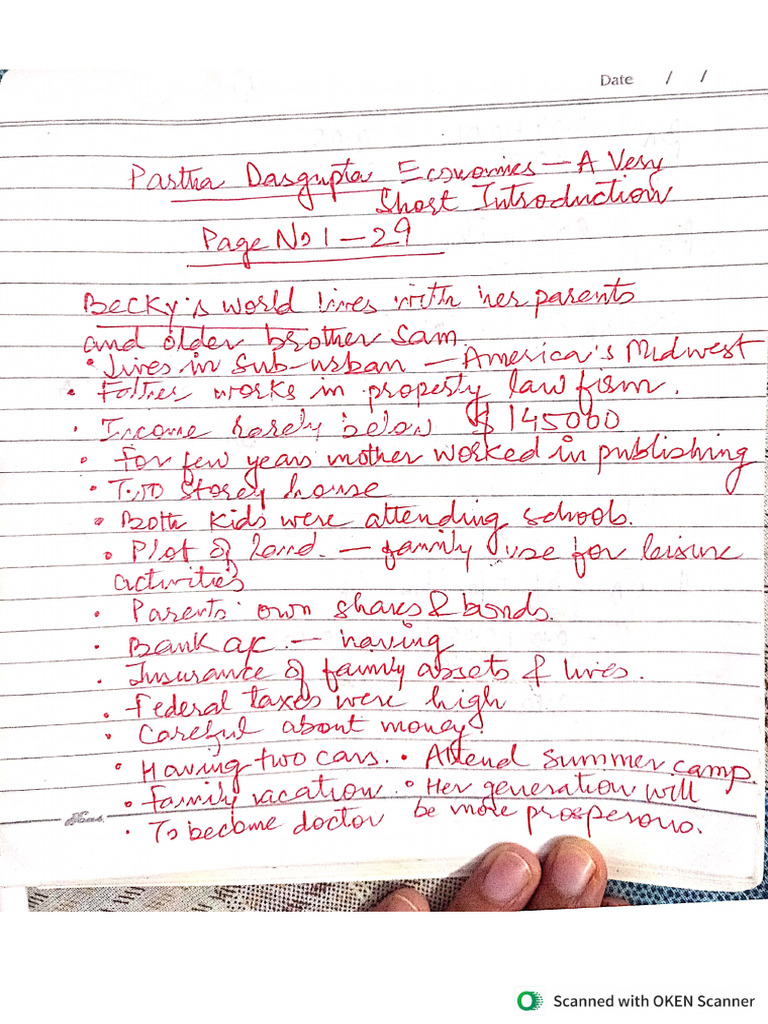 Date / /
Partha Dasgupta Economics — A Very
Short Introduction
Page No 1 – 29
Becky's world lives with her parents
and older brother Sam.
• Lives in Sub-urban — America's Midwest
• Father works in property law firm.
• Income rarely below $ 145000
• For few years mother worked in publishing
• Two storey house
• Both kids were attending schools.
• Plot of Land. — family use for leisure
activities
• Parents own shares & bonds.
• Bank a/c — having
• Insurance of family assets & lives.
• Federal taxes were high
• Careful about money.
• Having two cars. • Attend summer camp.
• family vacation. • Her generation will
• To become doctor be more prosperous.
Scanned with OKEN Scanner